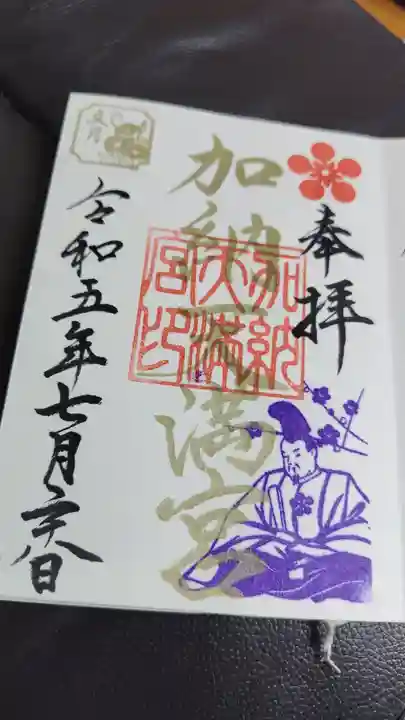 奉拝
加納天満宮
加納天満宮印
令和五年七月日